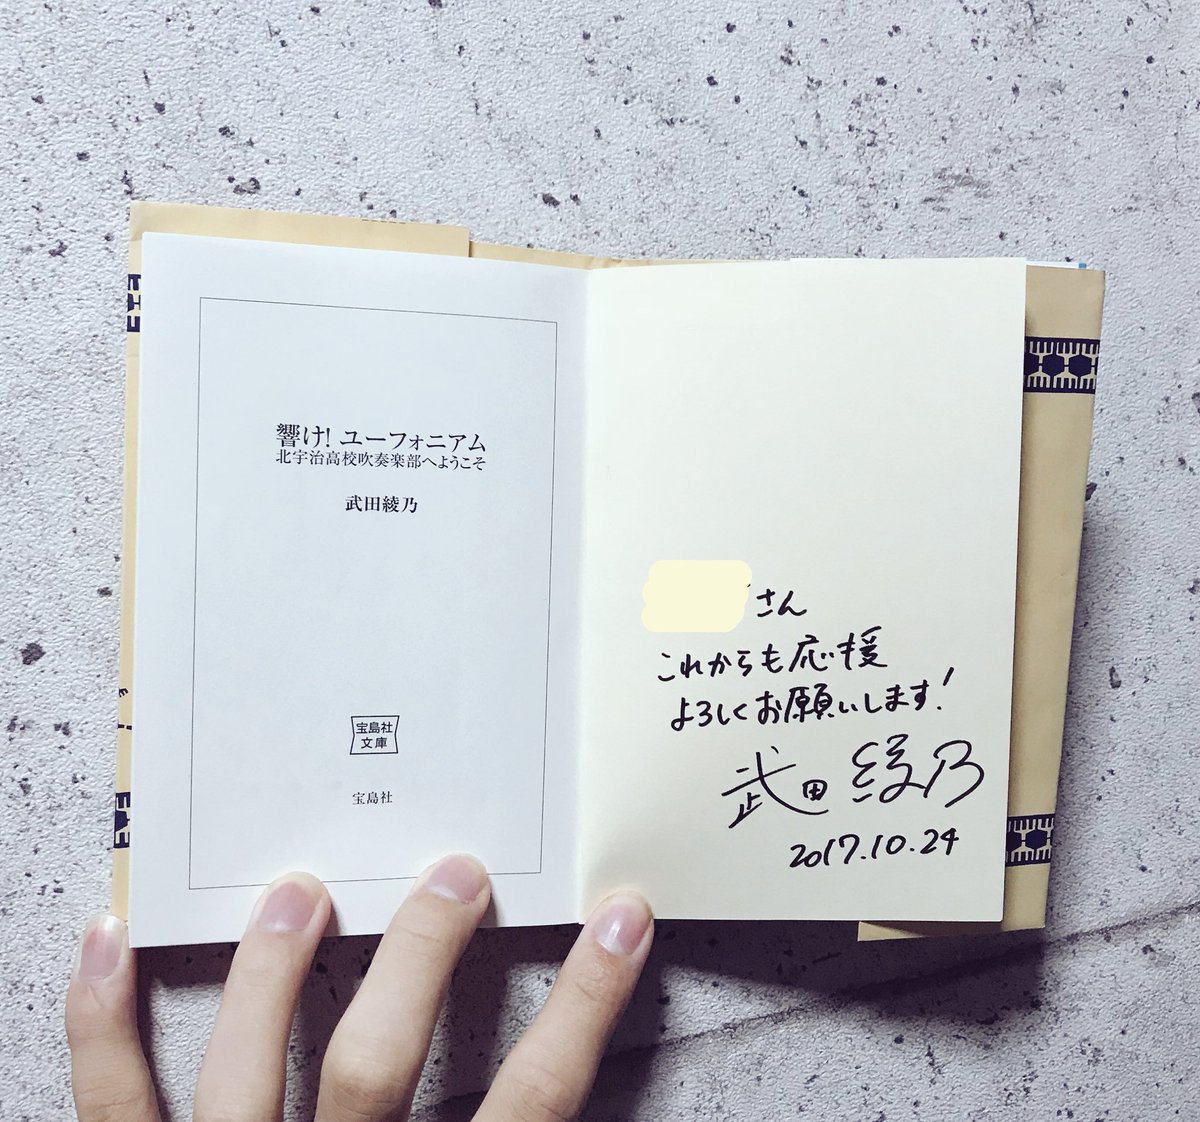 響け! ユーフォニアム
北宇治高校吹奏楽部へようこそ
武田綾乃
宝島社
文庫
宝島社
さん
これからも応援
よろしくお願いします!
武田綾乃
2017.10.24